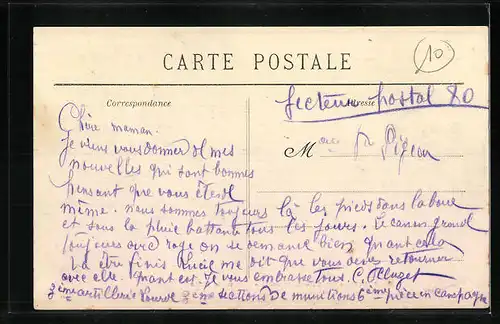 CARTE POSTALE
10
Correspondance
Adresse
Secteur postal 80
M
Chère maman.
Je viens vous donner de mes
nouvelles qui sont bonnes
pensant que vous êtes de
même. nous sommes toujours là les pieds dans la boue
et sous la pluie battante tous les jours. Le canon gronde
toujours avec rage on se demande bien quant cela
va être finis Lucie me dit que vous devez retourner
avec elle. quant est. Je vous embrasse tous. C.
3eme artillerie Lourde 3eme sections De munitions 6eme pièce en campagne